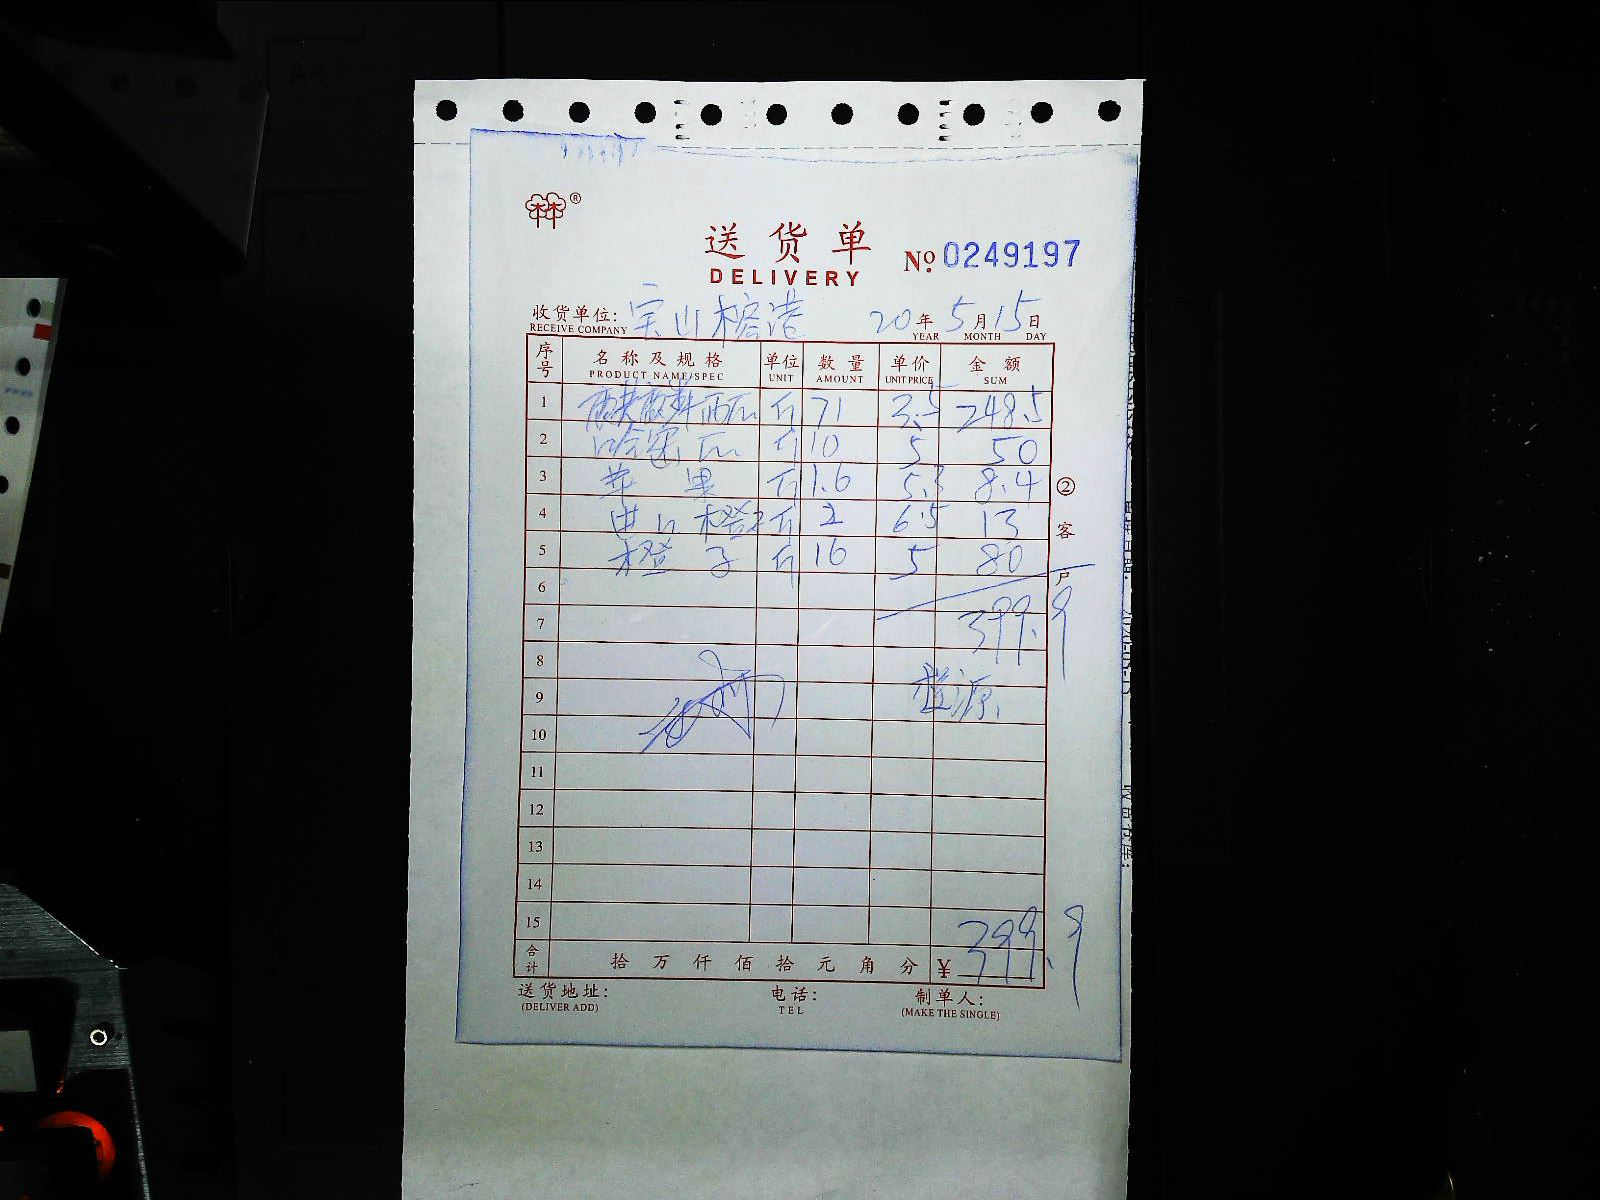 送货单
DELIVERY
№ 0249197
收货单位: 宝山榕港 20年5月15日
RECEIVE COMPANY YEAR MONTH DAY
序号 名称及规格 单位 数量 单价 金额
PRODUCT NAME/SPEC UNIT AMOUNT UNIT PRICE SUM
1 西瓜 斤 71 3.5 248.5
2 哈密瓜 斤 10 5 50
3 苹果 斤 1.6 5.3 8.4
4 进口橙子 斤 2 6.5 13
5 橙子 斤 16 5 80
6
7 399.9
8
9 源
10
11
12
13
14
15
合计 拾万仟佰拾元角分 ¥399.9
②客户
送货地址: 电话: 制单人:
(DELIVER ADD) TEL (MAKE THE SINGLE)